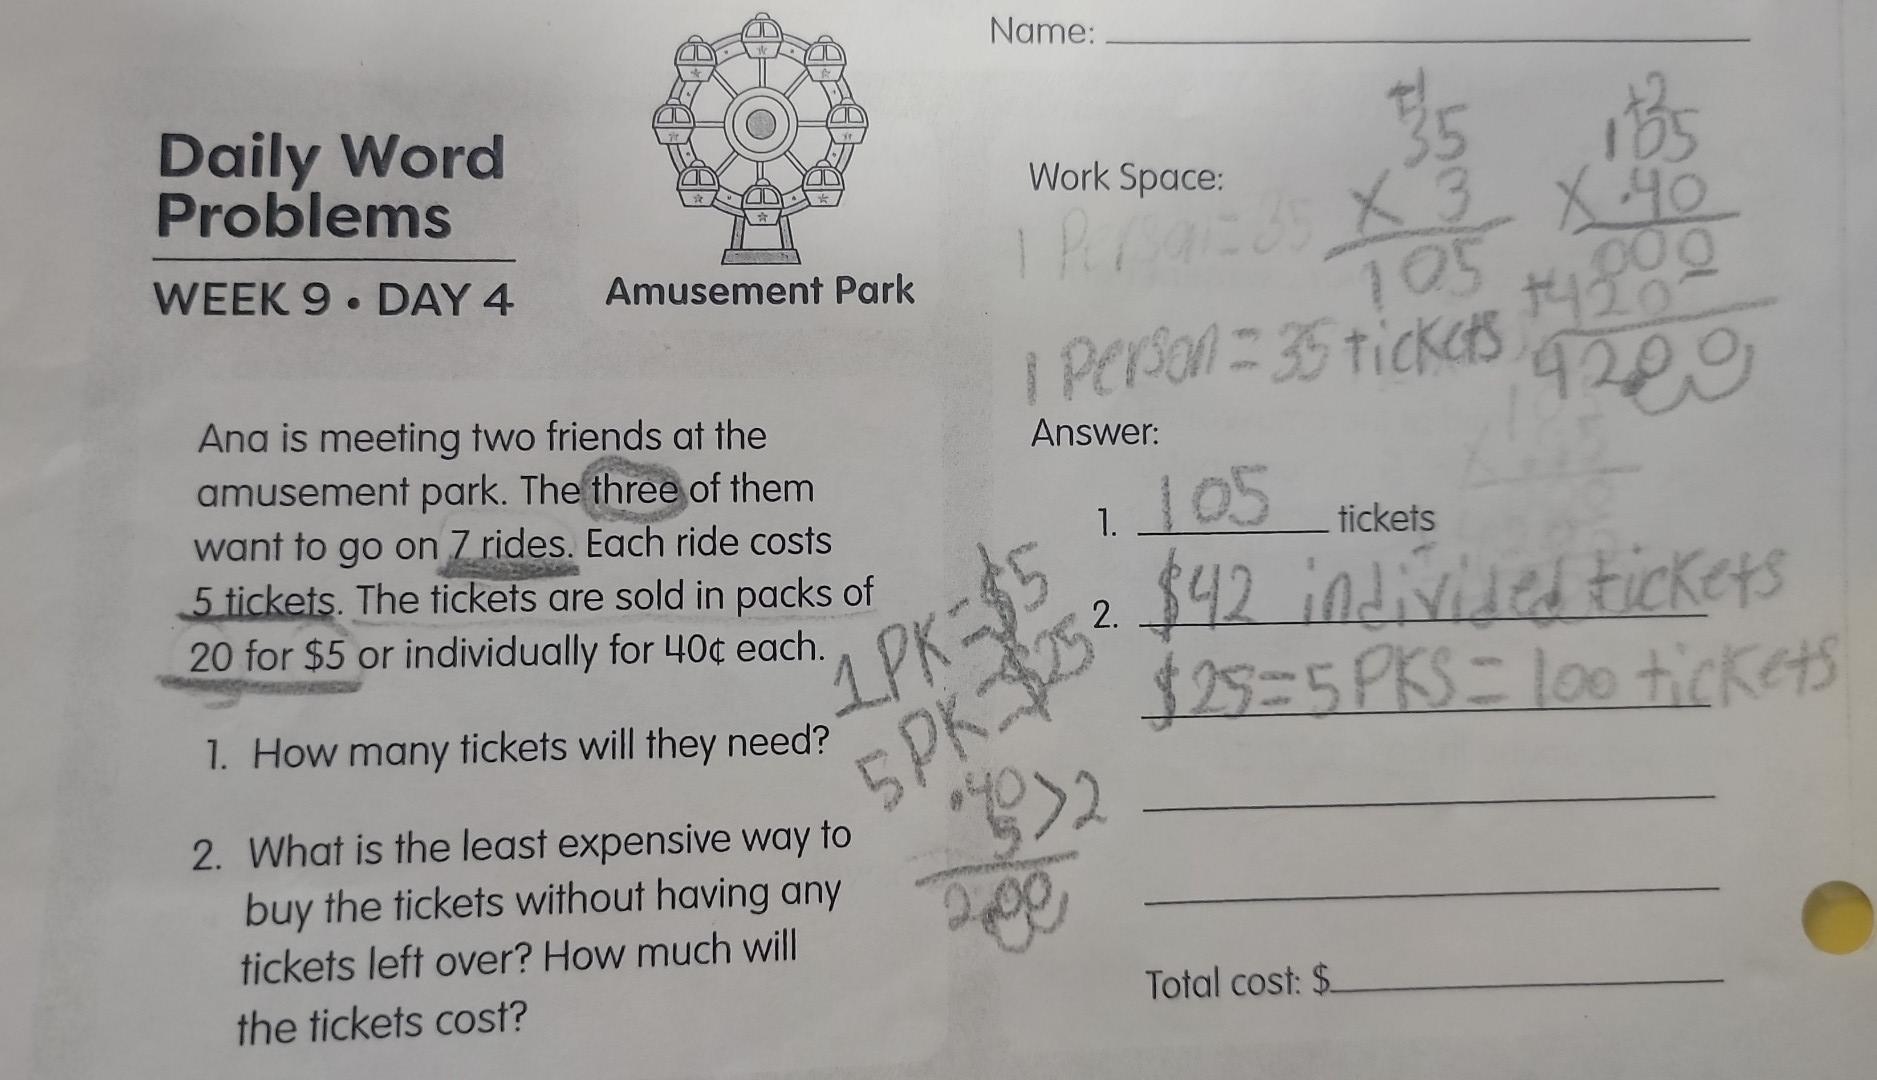 Name:
Daily Word
Problems
WEEK 9 • DAY 4
Amusement Park
Work Space:
1 Person = 35
+1
35
X 3
105
+2
105
X .40
000
+420
4200
1 Person = 35 tickets
Ana is meeting two friends at the
amusement park. The three of them
want to go on 7 rides. Each ride costs
5 tickets. The tickets are sold in packs of
20 for $5 or individually for 40¢ each.
1. How many tickets will they need?
2. What is the least expensive way to
buy the tickets without having any
tickets left over? How much will
the tickets cost?
1 PK = $5
5 PK = $25
.40 > 2
5
2.00
Answer:
1. 105 tickets
2. $42 individed tickets
$25 = 5 PKS = 100 tickets
Total cost: $